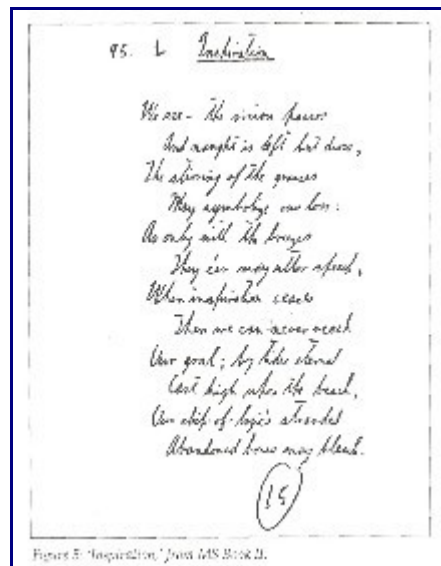 95. L Inspiration
We see - the vision passes
And naught is left but dross,
The stirring of the grasses
May symbolize our loss:
As only with the breezes
They can may utter speech,
When inspiration ceases
Then we can never reach
Our goal; by tides eternal
Cast high upon the beach,
Our ship of logic's stranded
Abandoned bones may bleach.
15
Figure 5: 'Inspiration,' from MS Book II.